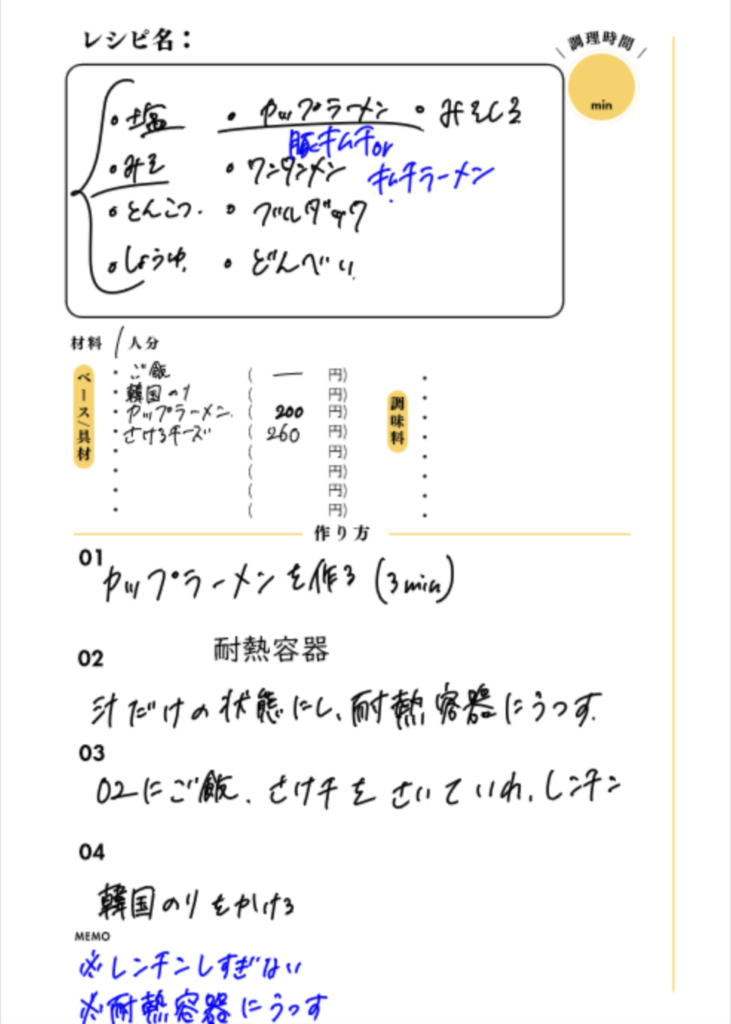 レシピ名：
調理時間
min
・塩 ・カップラーメン ・みそしる
豚キムチor
・みそ ・ワンタンメン キムチラーメン
・とんこつ. ・ブルダック
・しょうゆ. ・どんべい.
材料 1人分
ベース/具材
・ご飯 ( ― 円)
・韓国のり ( 円)
・カップラーメン. ( 200 円)
・さけるチーズ ( 260 円)
・ ( 円)
・ ( 円)
・ ( 円)
・ ( 円)
調味料
・
・
・
・
・
・
・
・
作り方
01
カップラーメンを作る (3min)
02 耐熱容器
汁だけの状態にし、耐熱容器にうつす.
03
02にご飯、さけチをさいていれ、レンチン
04
韓国のりをかける
MEMO
※レンチンしすぎない
※耐熱容器にうつす